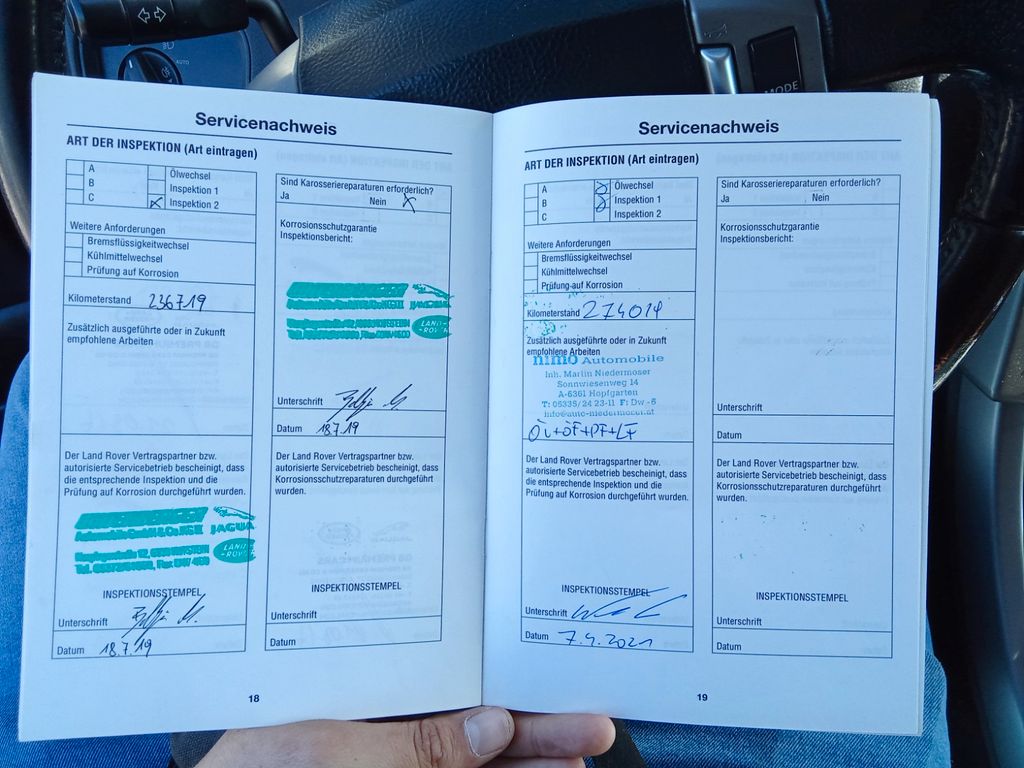 AUTO
MODE
Servicenachweis
ART DER INSPEKTION (Art eintragen)
A
B
C
Ölwechsel
Inspektion 1
Inspektion 2
Weitere Anforderungen
Bremsflüssigkeitwechsel
Kühlmittelwechsel
Prüfung auf Korrosion
Kilometerstand 236719
Zusätzlich ausgeführte oder in Zukunft
empfohlene Arbeiten
Der Land Rover Vertragspartner bzw.
autorisierte Servicebetrieb bescheinigt, dass
die entsprechende Inspektion und die
Prüfung auf Korrosion durchgeführt wurden.
Automobile GmbH & Co KG JAGUAR
LAND-
ROVER
INSPEKTIONSSTEMPEL
Unterschrift
Datum 18.7.19
Sind Karosseriereparaturen erforderlich?
Ja Nein X
Korrosionsschutzgarantie
Inspektionsbericht:
JAGUAR
LAND-
ROVER
Unterschrift
Datum 18.7.19
Der Land Rover Vertragspartner bzw.
autorisierte Servicebetrieb bescheinigt, dass
Korrosionsschutzreparaturen durchgeführt
wurden.
INSPEKTIONSSTEMPEL
Unterschrift
Datum
18
Servicenachweis
ART DER INSPEKTION (Art eintragen)
A
B
C
Ölwechsel
Inspektion 1
Inspektion 2
Weitere Anforderungen
Bremsflüssigkeitwechsel
Kühlmittelwechsel
Prüfung auf Korrosion
Kilometerstand 274014
Zusätzlich ausgeführte oder in Zukunft
empfohlene Arbeiten
nimo Automobile
Inh. Martin Niedermoser
Sonnwiesenweg 14
A-6361 Hopfgarten
T: 05335/24 23-11 F: Dw -5
info@auto-niedermoser.at
Öl+ÖF+PF+LF
Der Land Rover Vertragspartner bzw.
autorisierte Servicebetrieb bescheinigt, dass
die entsprechende Inspektion und die
Prüfung auf Korrosion durchgeführt wurden.
INSPEKTIONSSTEMPEL
Unterschrift
Datum 7.4.2021
Sind Karosseriereparaturen erforderlich?
Ja Nein
Korrosionsschutzgarantie
Inspektionsbericht:
Unterschrift
Datum
Der Land Rover Vertragspartner bzw.
autorisierte Servicebetrieb bescheinigt, dass
Korrosionsschutzreparaturen durchgeführt
wurden.
INSPEKTIONSSTEMPEL
Unterschrift
Datum
19